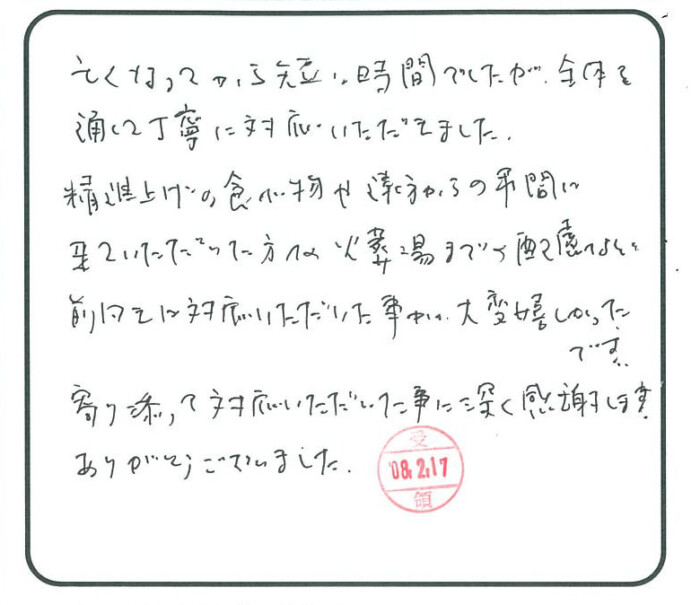 亡くなってから短い時間でしたが、全体を
通して丁寧に対応いただきました。
精進上げの食べ物や遠方からの弔問に
来ていただいた方への火葬場まで配慮
前日までに対応いただいた事が、大変嬉しかった
です。
寄り添って対応いただいた事に深く感謝します
ありがとうございました。
受
08.2.17
領